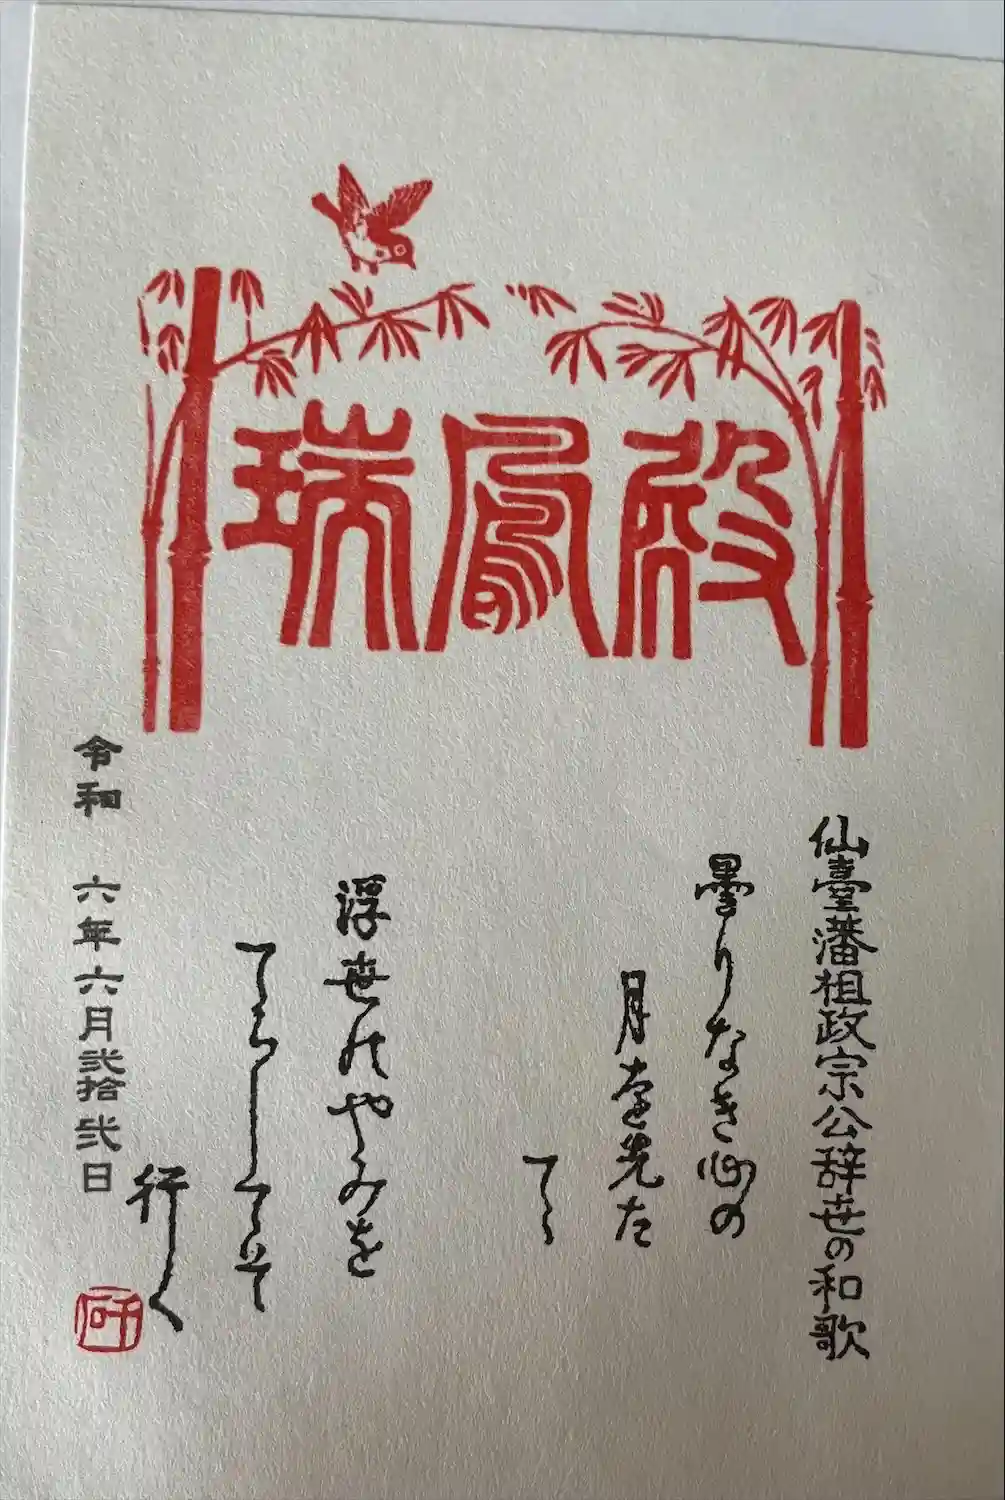 瑞鳳殿
仙臺藩祖政宗公辞世の和歌
曇りなき心の
月を先た
てゝ
浮世のやみを
てらしてそ
行く
令和 六年六月弐拾弐日